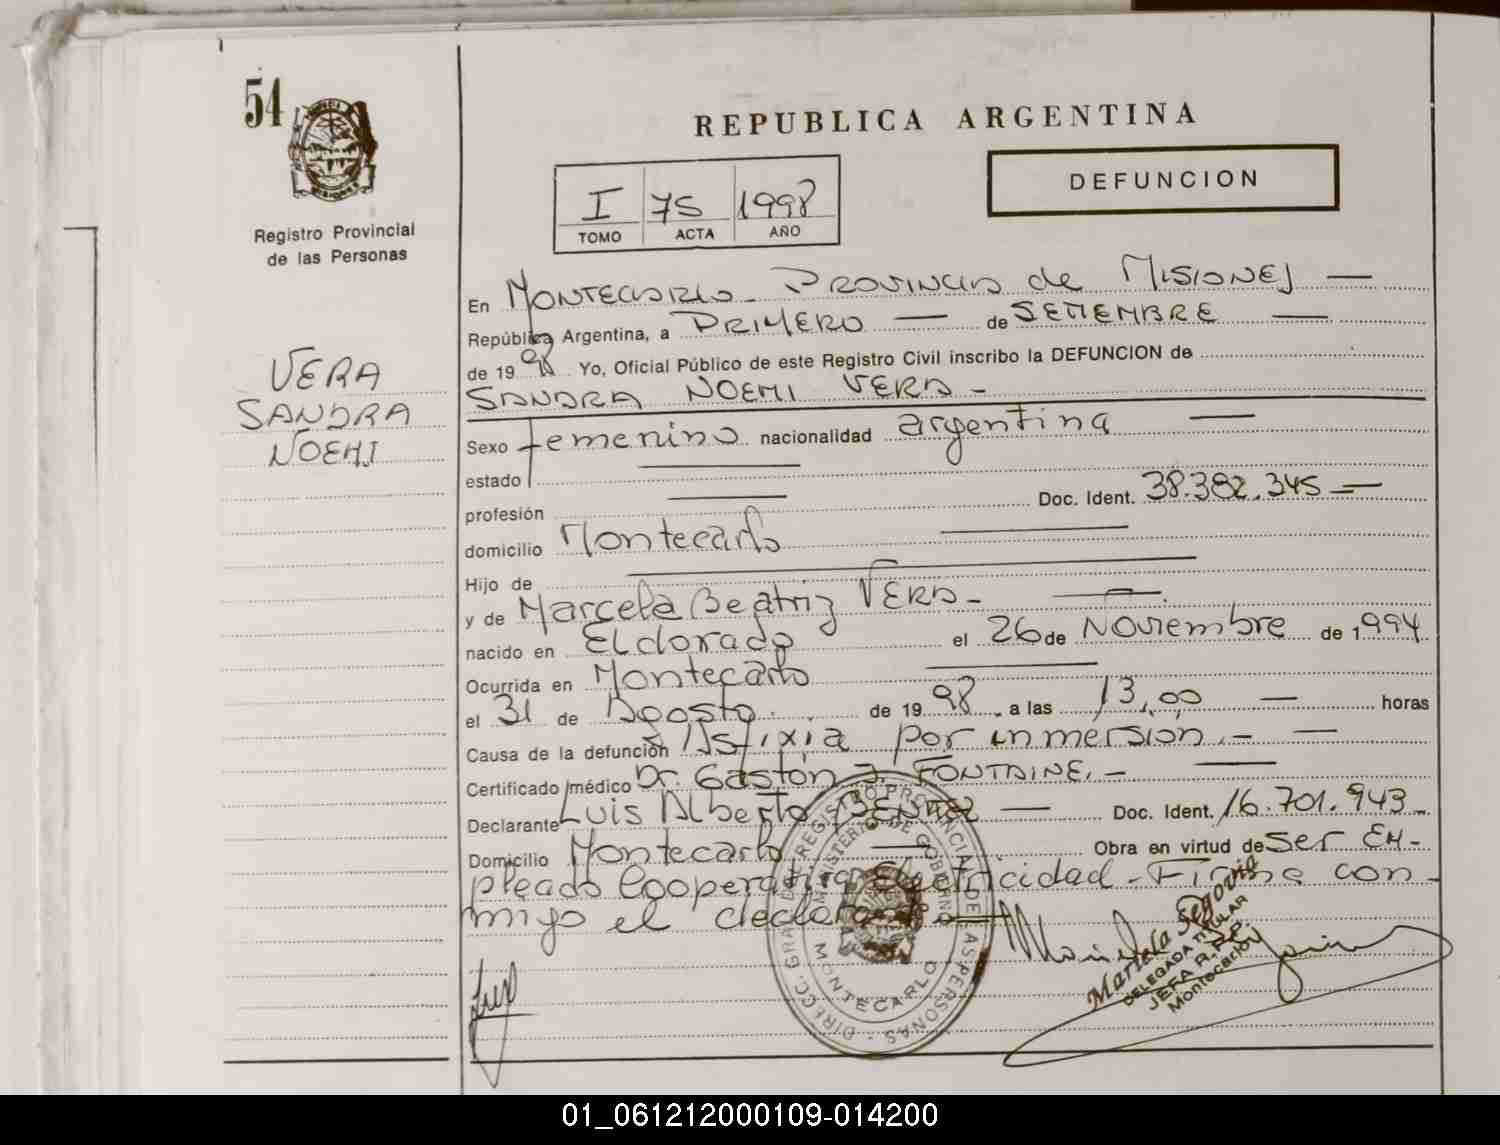 54
REPUBLICA ARGENTINA
DEFUNCION
I 75 1998
TOMO ACTA AÑO
Registro Provincial
de las Personas
VERA
SANDRA
NOEMI
En MONTECARLO - PROVINCIA de MISIONES —
República Argentina, a PRIMERO — de SETIEMBRE —
de 1998 Yo, Oficial Público de este Registro Civil inscribo la DEFUNCION de
SANDRA NOEMI VERA -
Sexo femenino nacionalidad argentina —
estado —
profesión — Doc. Ident. 38.382.345 —
domicilio Montecarlo —
Hijo de —
y de Marcela Beatriz VERA - —
nacido en Eldorado el 26 de Noviembre de 1994
Ocurrida en Montecarlo —
el 31 de Agosto de 1998 a las 13,00 — horas
Causa de la defunción Asfixia por inmersión.- —
Certificado médico Dr. Gastón J. FONTAINE.- —
Declarante Luis Alberto BENITEZ — Doc. Ident. 16.701.943
Domicilio Montecarlo — Obra en virtud de ser em-
pleado Cooperativa Electricidad - Firma con-
migo el declarante —
DIRECC. GRAL. DE REGISTRO PROVINCIAL DE LAS PERSONAS
MINISTERIO DE GOBIERNO
MONTECARLO
Mariela Segovia
DELEGADA TITULAR
JEFA R.P.P.
Montecarlo
01_061212000109-014200